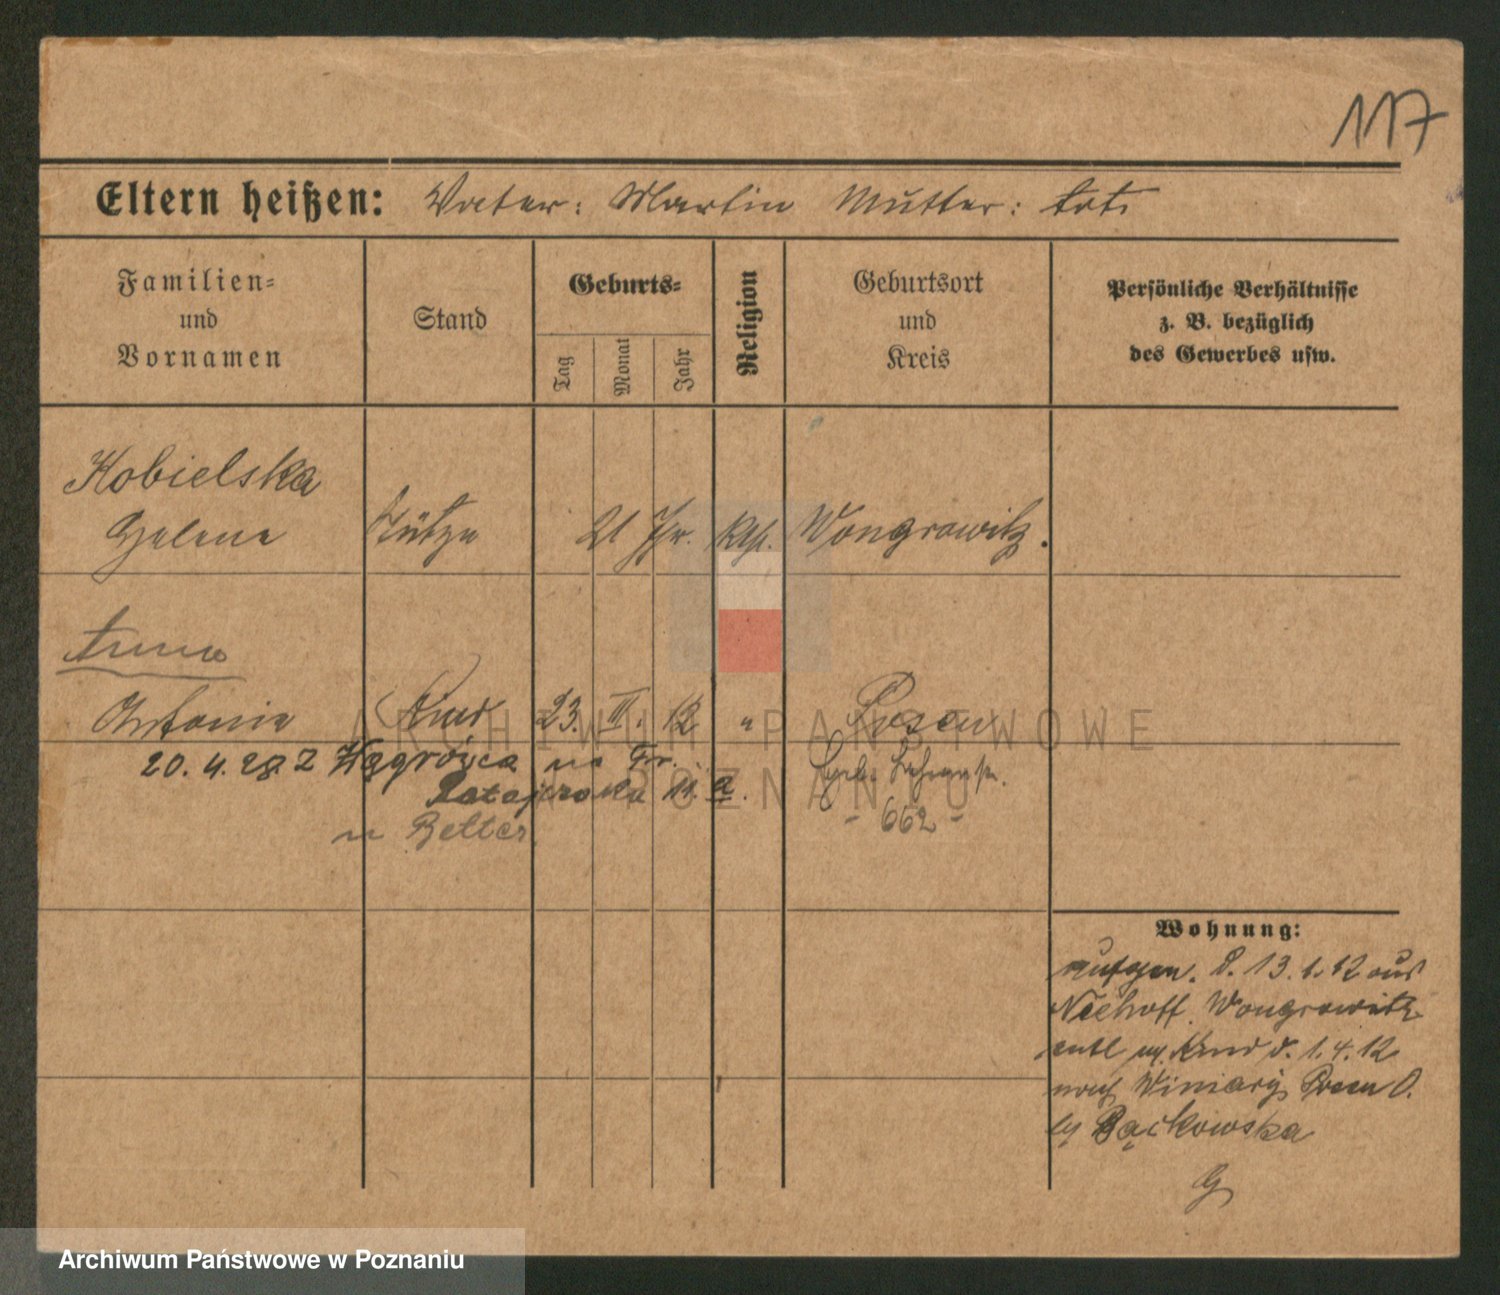 117
Eltern heißen: Vater: Martin Mutter: tot.
Familien=
und
Vornamen
Stand
Geburts=
Tag
Monat
Jahr
Religion
Geburtsort
und
Kreis
Persönliche Verhältnisse
z. B. bezüglich
des Gewerbes usw.
Kobielska
Helene Stütze 21 Jhr. kth. Wongrowitz.
Anna
Antonie Kind 23. III. 12 " Posen
20. 4. 28. z Wągrówca na Fr.
Ratajczaka 11. a.
u Better
662
Wohnung:
aufgen. d. 13. 1. 12 aus
Niehoff. Wongrowitz
entl m. Kind d. 1. 4. 12
nach Winiary Posen O.
by Bąckowska
G
ARCHIWUM PAŃSTWOWE
W POZNANIU
Archiwum Państwowe w Poznaniu